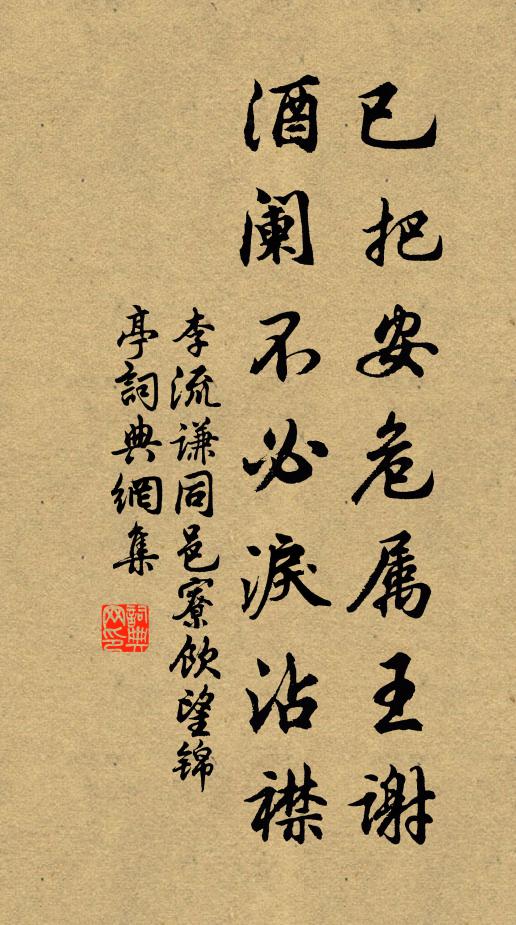 已把安危属王谢
酒阑不必淚沾襟
李流谦同邑寮饮望锦
亭詞典網集
詞典
网印